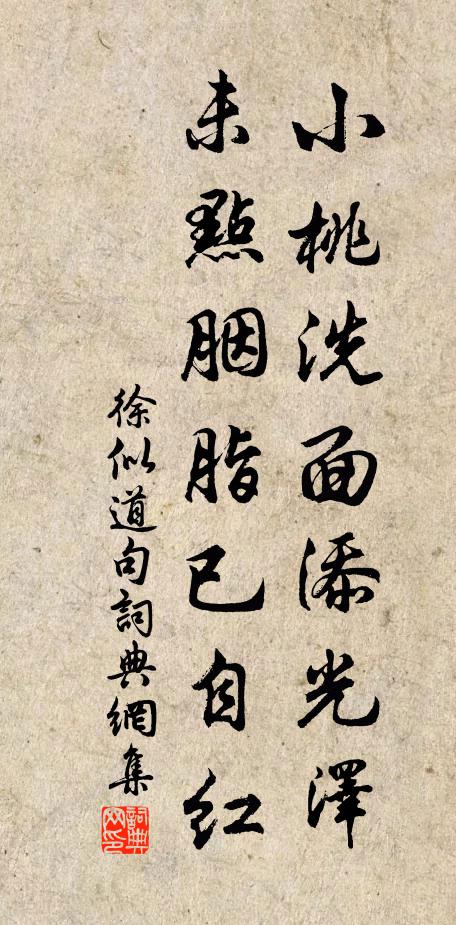 小桃洗面添光澤
未點胭脂已自紅
徐似道句詞典網集
詞典
网印